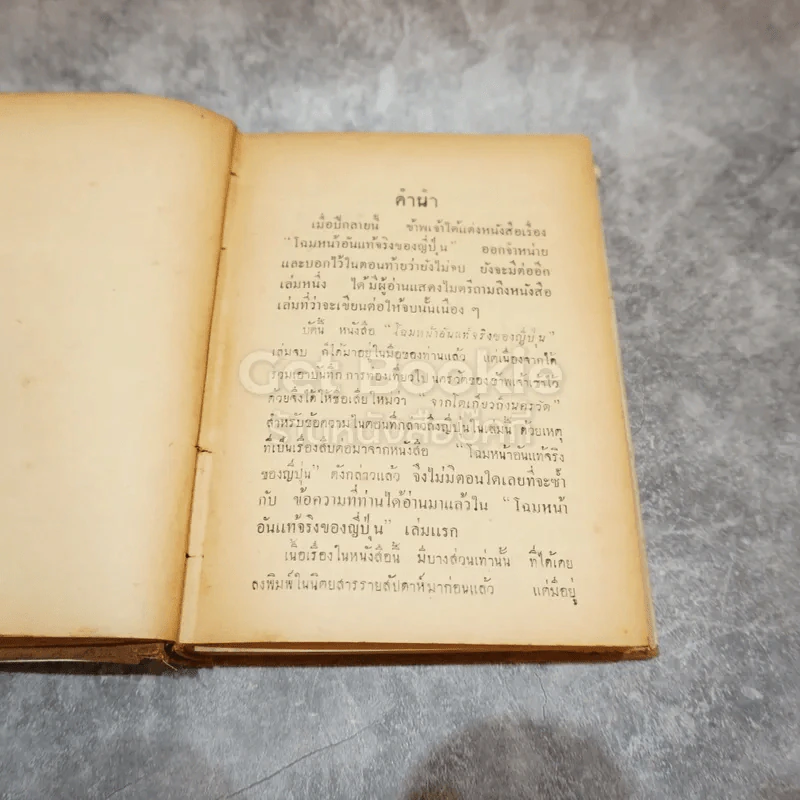 คำนำ
เมื่อปีกลายนี้ ข้าพเจ้าได้แต่งหนังสือเรื่อง
“โฉมหน้าอันแท้จริงของญี่ปุ่น” ออกจำหน่าย
และบอกไว้ในตอนท้ายว่ายังไม่จบ ยังจะมีต่ออีก
เล่มหนึ่ง ได้มีผู้อ่านแสดงไมตรีถามถึงหนังสือ
เล่มที่ว่าจะเขียนต่อให้จบนั้นเนือง ๆ
บัดนี้ หนังสือ “โฉมหน้าอันแท้จริงของญี่ปุ่น”
เล่มจบ ก็ได้มาอยู่ในมือของท่านแล้ว แต่เนื่องจากได้
รวมเอาบันทึกการท่องเที่ยวไปนครวัดของข้าพเจ้าเข้าไว้
ด้วยจึงได้ให้ชื่อเสียใหม่ว่า “จากโตเกียวถึงนครวัด”
สำหรับข้อความในตอนที่กล่าวถึงญี่ปุ่นในเล่มนี้ ด้วยเหตุ
ที่เป็นเรื่องสืบต่อมาจากหนังสือ “โฉมหน้าอันแท้จริง
ของญี่ปุ่น” ดังกล่าวแล้ว จึงไม่มีตอนใดเลยที่จะซ้ำ
กับ ข้อความที่ท่านได้อ่านมาแล้วใน “โฉมหน้า
อันแท้จริงของญี่ปุ่น” เล่มแรก
เนื้อเรื่องในหนังสือนี้ มีบางส่วนเท่านั้น ที่ได้เคย
ลงพิมพ์ในนิตยสารรายสัปดาห์มาก่อนแล้ว แต่มีอยู่
Get Bookie
ร้านหนังสือบุ๊คกี้